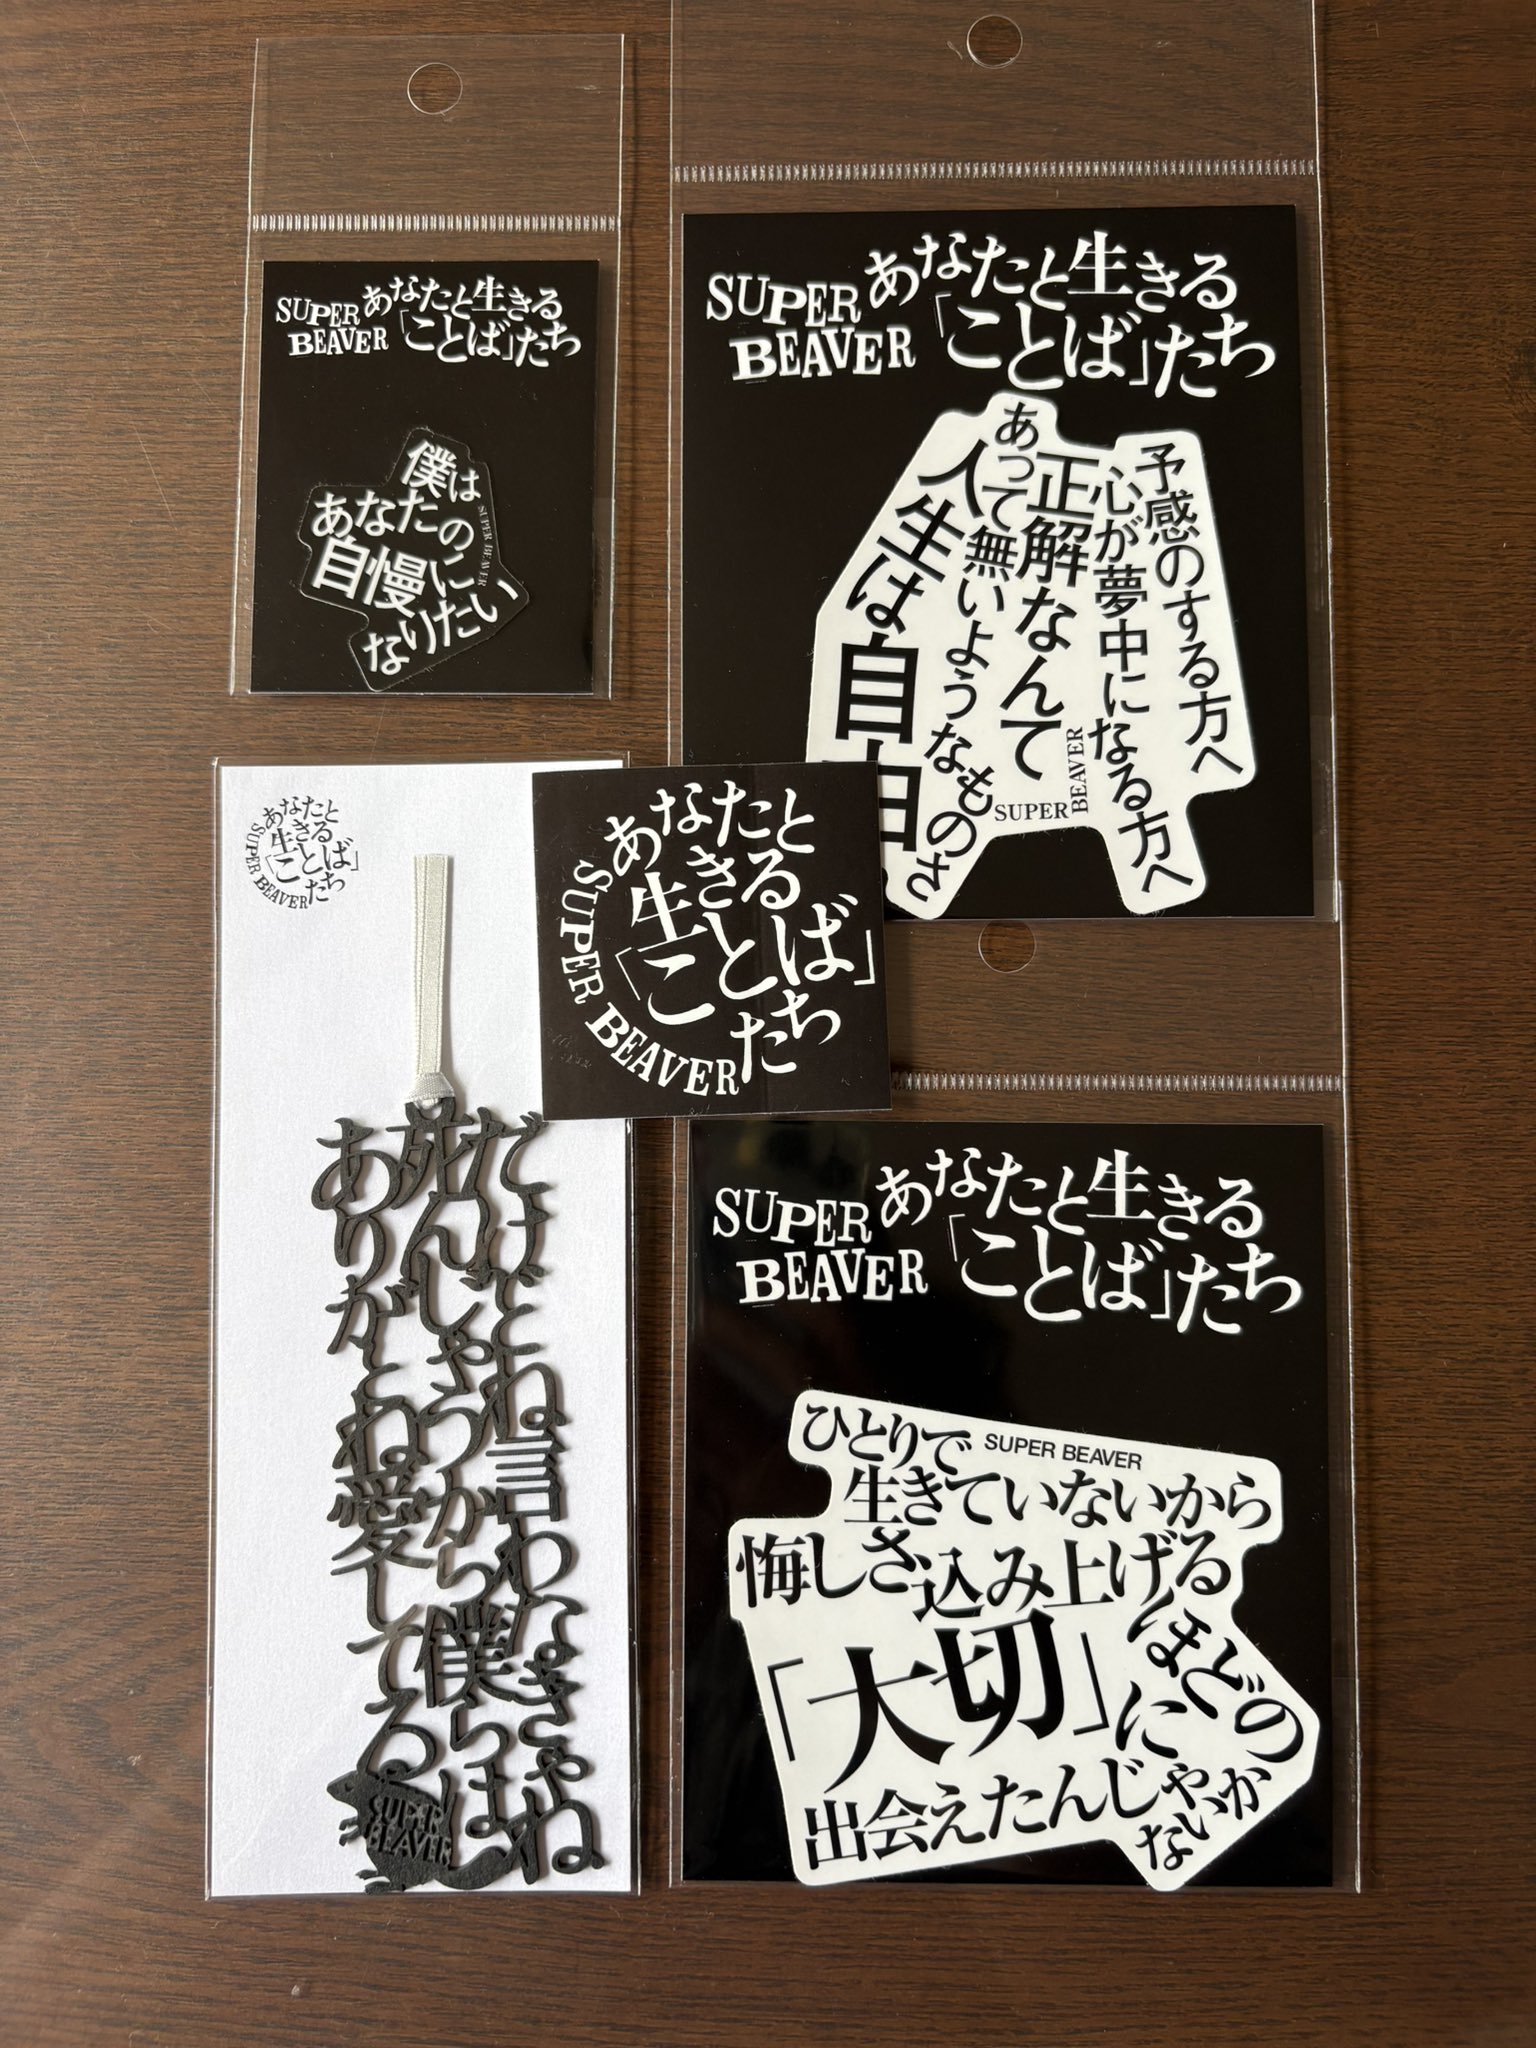 SUPER
BEAVER
あなたと生きる
「ことば」たち
僕は
あなたの
自慢に
なりたい
SUPER BEAVER
SUPER
BEAVER
あなたと生きる
「ことば」たち
予感のする方へ
心が夢中になる方へ
正解なんて
あって無いようなものさ
人生は自由
SUPER
BEAVER
あなたと
生きる
「ことば」
たち
SUPER BEAVER
だけどね言わなきゃね
死んじゃうから僕らは
ありがとね愛してる
SUPER
BEAVER
あなたと
生きる
「ことば」
たち
SUPER BEAVER
SUPER
BEAVER
あなたと生きる
「ことば」たち
ひとりで
SUPER BEAVER
生きていないから
悔しさ込み上げる
ほどの
「大切」に
出会えたんじゃ
ないか